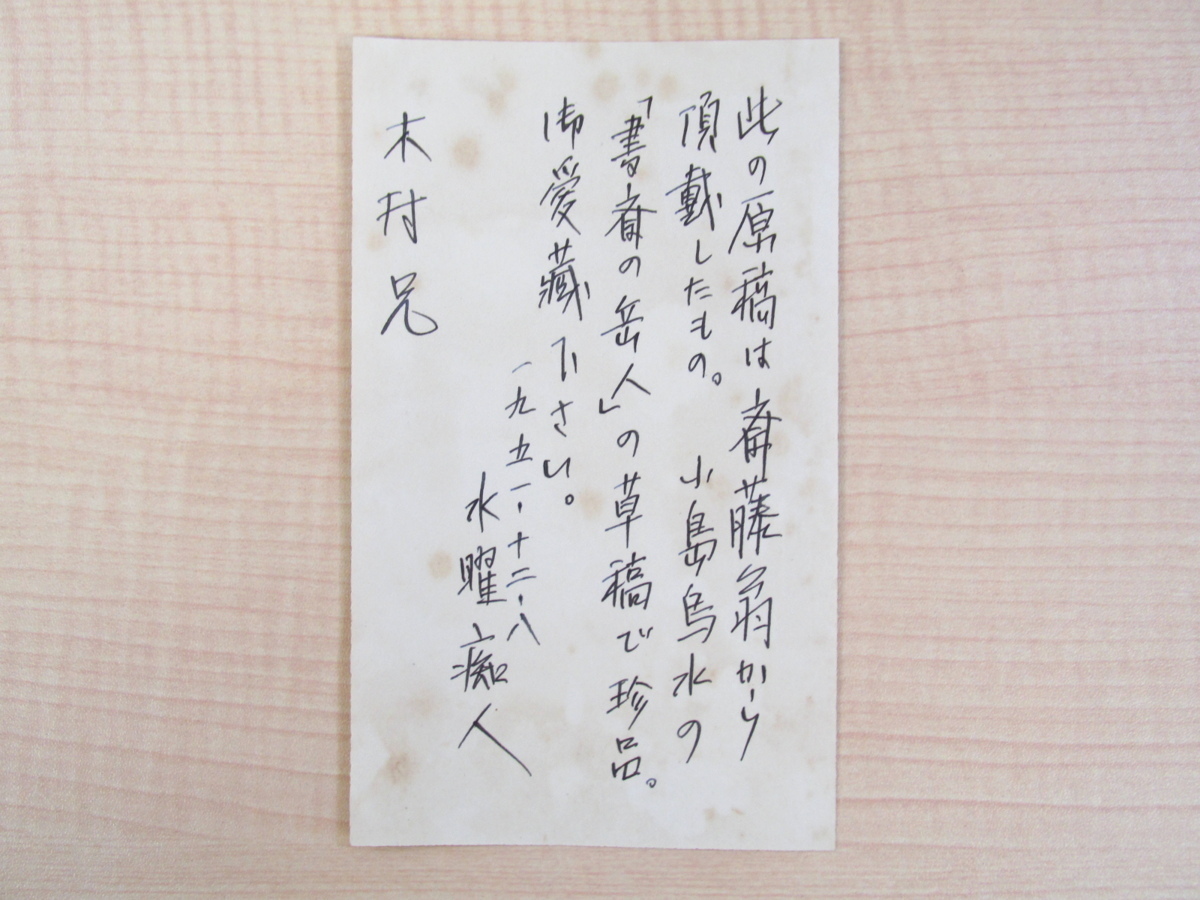 此の原稿は斎藤翁から
頂戴したもの。 小島烏水の
「書斎の岳人」の草稿で珍品。
御愛藏下さい。
一九五一・十二・八
水曜痴人
木村兄